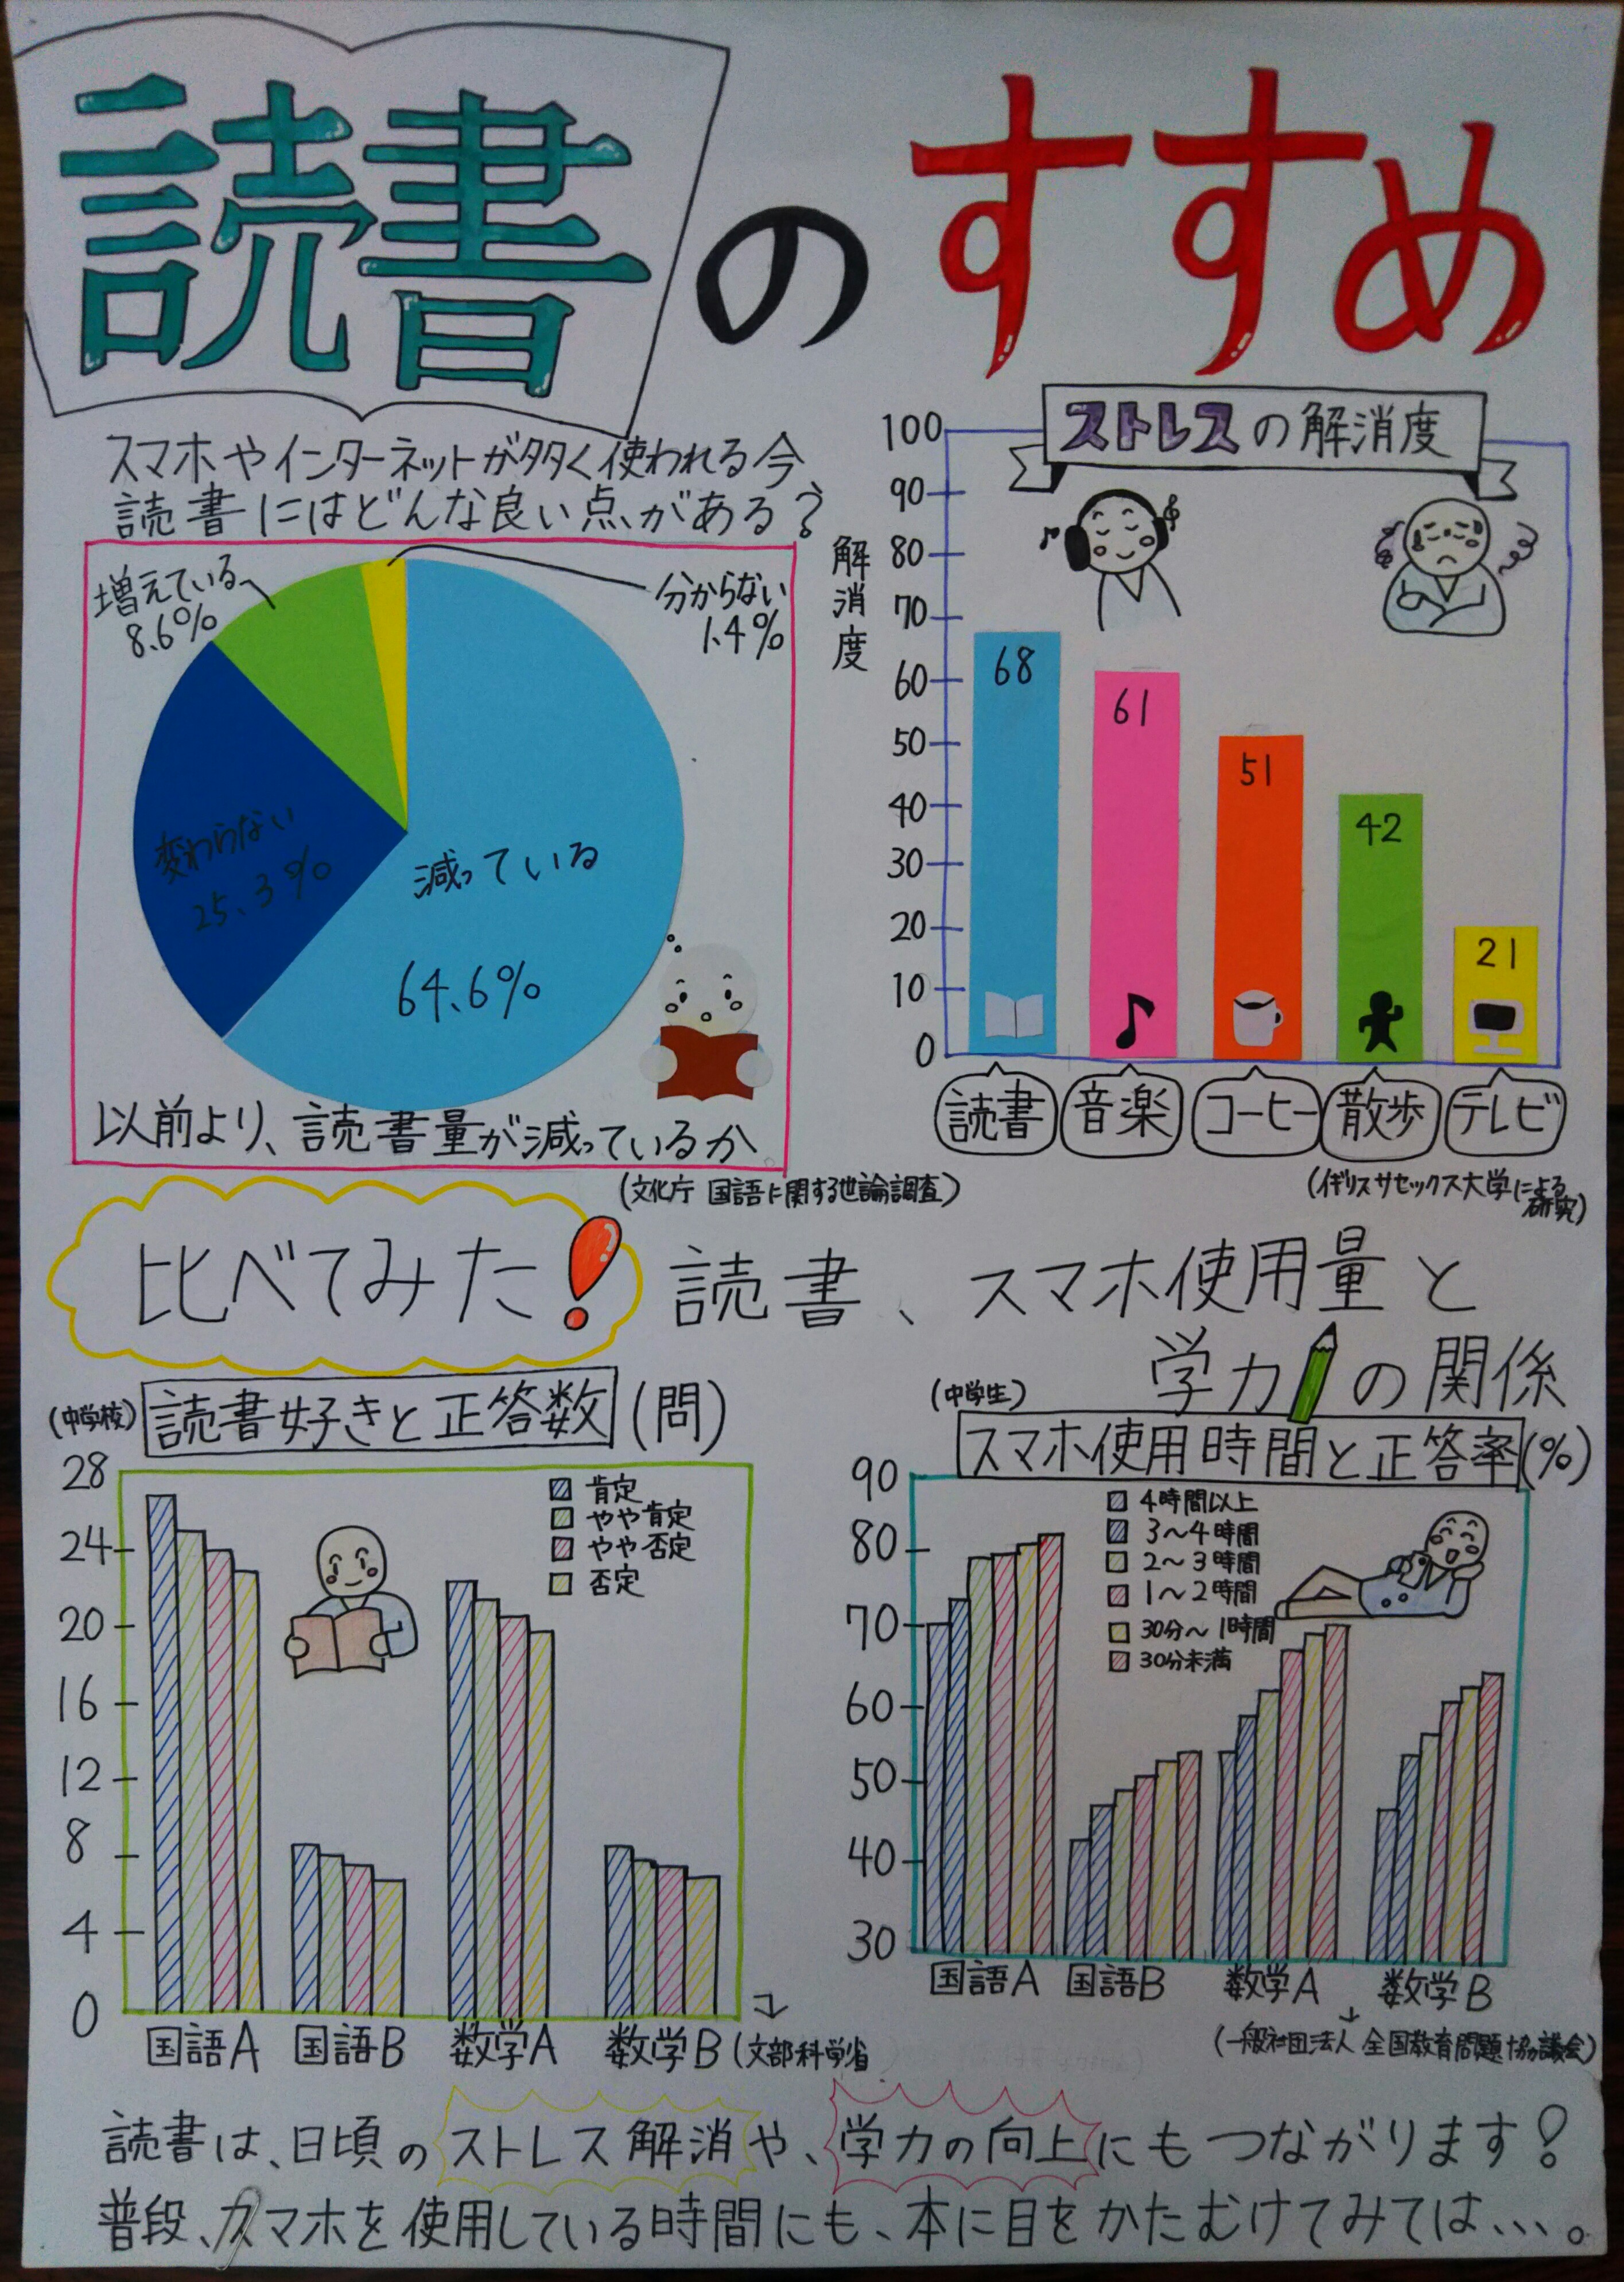 読書のすすめ
スマホやインターネットが多く使われる今
読書にはどんな良い点がある？
増えている
8.6%
分からない
1.4%
変わらない
25.3%
減っている
64.6%
以前より、読書量が減っているか
(文化庁 国語に関する世論調査)
ストレスの解消度
解消度
100
90
80
70
60
50
40
30
20
10
0
68
61
51
42
21
読書
音楽
コーヒー
散歩
テレビ
(イギリスサセックス大学による
研究)
比べてみた!
読書、スマホ使用量と
学力の関係
(中学校) 読書好きと正答数 (問)
28
24
20
16
12
8
4
0
肯定
やや肯定
やや否定
否定
国語A
国語B
数学A
数学B
(文部科学省
(中学生)
スマホ使用時間と正答率(%)
90
80
70
60
50
40
30
4時間以上
3～4時間
2～3時間
1～2時間
30分～1時間
30分未満
国語A
国語B
数学A
数学B
(一般社団法人 全国教育問題協議会)
読書は、日頃のストレス解消や、学力の向上にもつながります！
普段、スマホを使用している時間にも、本に目をかたむけてみては、、、。